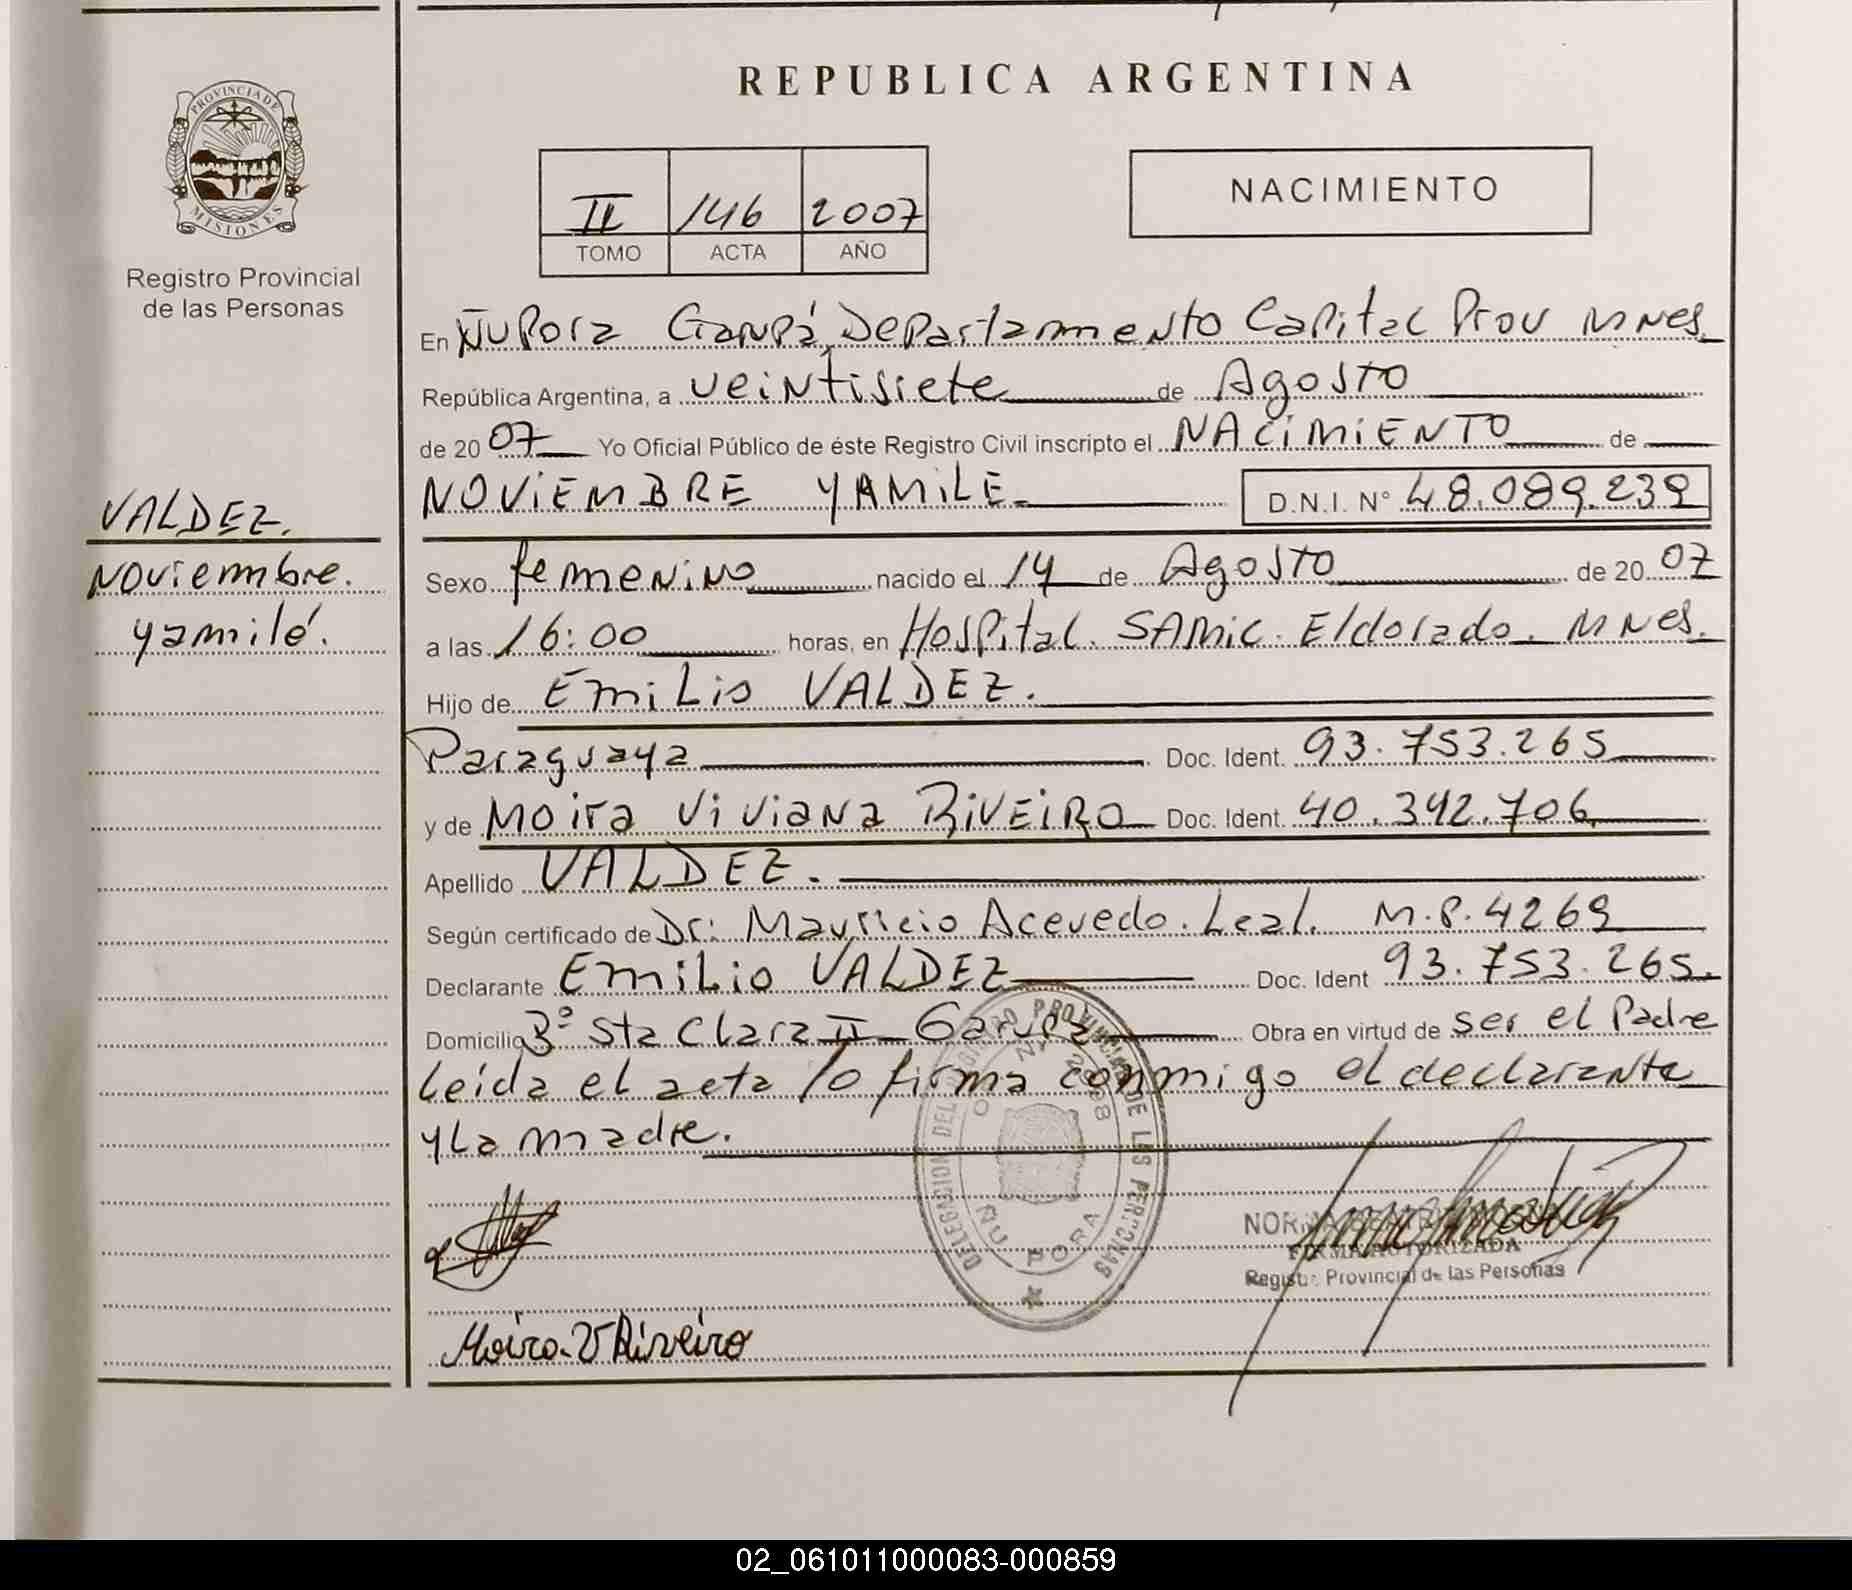 REPUBLICA ARGENTINA
PROVINCIA DE
MISIONES
Registro Provincial
de las Personas
II 146 2007
TOMO ACTA AÑO
NACIMIENTO
En Ñu Pora Garupá, Departamento Capital Prov Mnes.
República Argentina, a veintisiete de Agosto
de 20 07 Yo Oficial Público de éste Registro Civil inscripto el NACIMIENTO de
NOVIEMBRE YAMILE. D.N.I. N° 48.089.239
VALDEZ.
Noviembre.
Yamilé.
Sexo femenino nacido el 14 de Agosto de 20 07
a las 16:00 horas, en Hospital. SAMIC. Eldorado. Mnes.
Hijo de Emilio VALDEZ.
Paraguaya Doc. Ident. 93.753.265
y de Moira Viviana RIVEIRO Doc. Ident. 40.342.706.
Apellido VALDEZ.
Según certificado de Dr: Mauricio Acevedo. Leal. M.P. 4269
Declarante Emilio VALDEZ Doc. Ident 93.753.265.
Domicilio B° Sta Clara II Garupa Obra en virtud de ser el Padre
Leída el acta lo firma conmigo el declarante
y La madre.
DELEGACION DEL REGISTRO PROVINCIAL DE LAS PERSONAS
ÑU PORA
FIRMA AUTORIZADA
Registro Provincial de las Personas
Moira V Riveiro
02_061011000083-000859